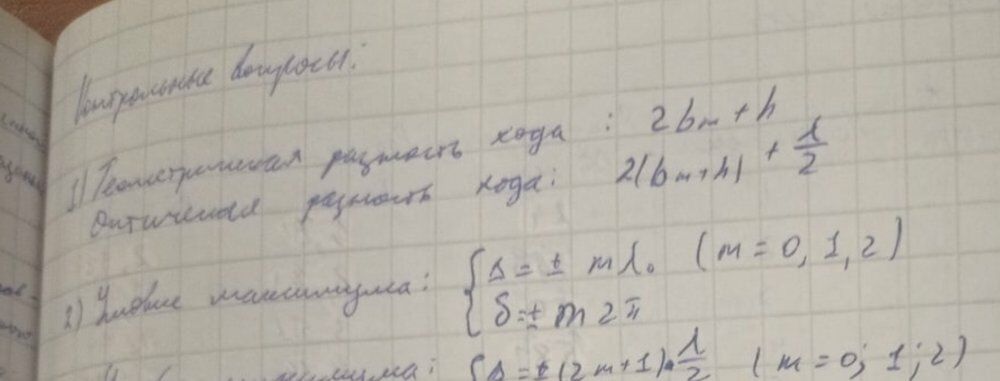 Контрольные вопросы:
1) Геометрическая разность хода : 2bm + h
Оптическая разность хода: 2(bm+h) + λ/2
2) Условие максимума: { Δ = ± mλ₀ (m = 0, 1, 2)
δ = ± m 2π
{ Δ = ± (2m+1)·λ/2 (m = 0; 1; 2)